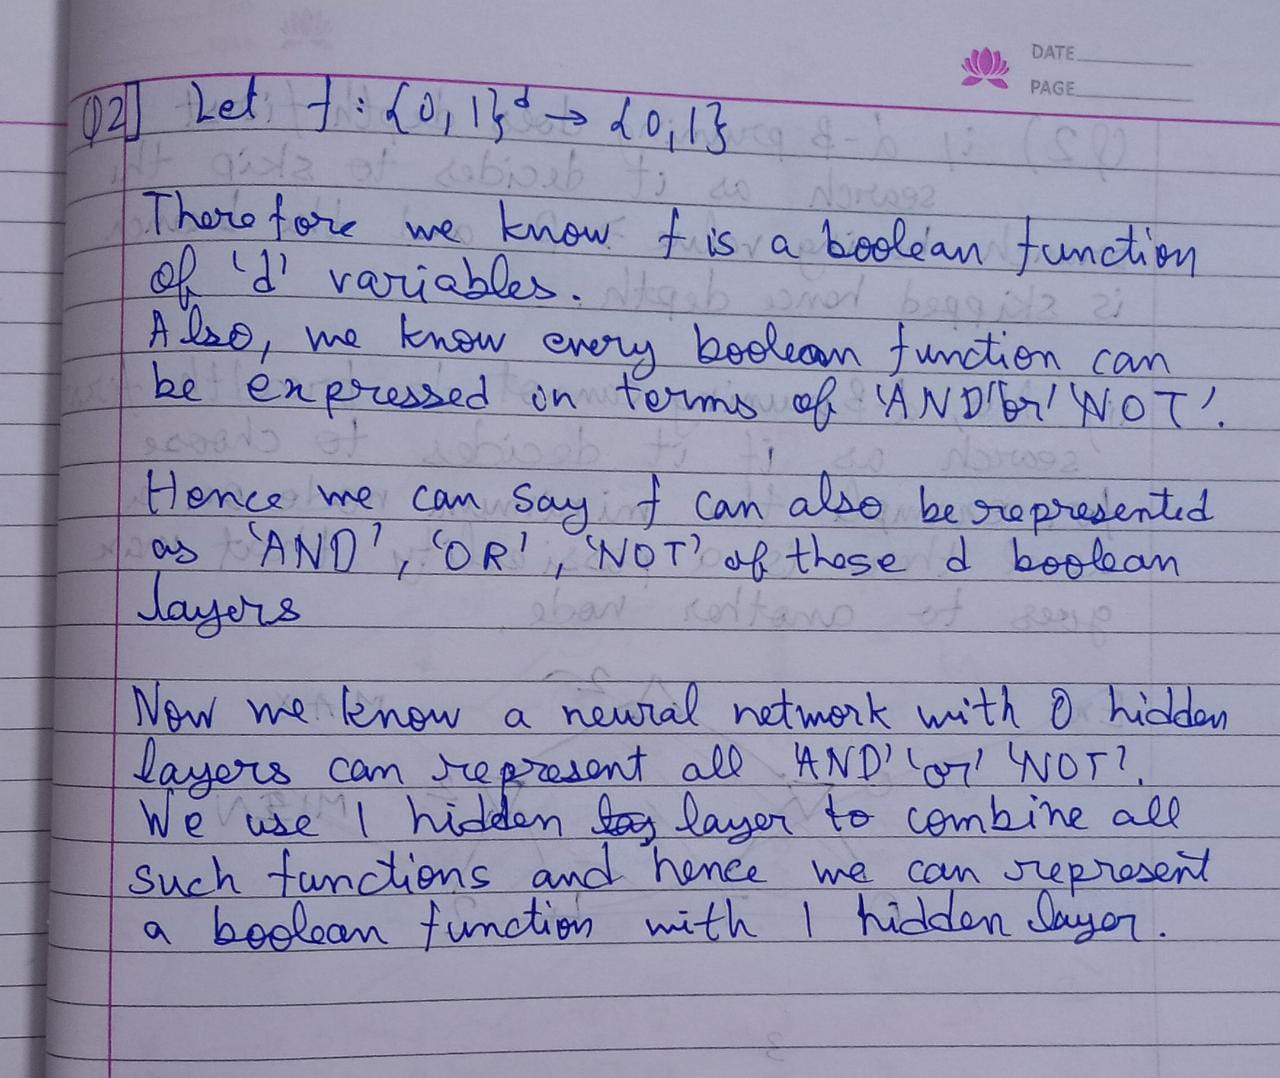 DATE
PAGE
Q2] Let f : {0,1}ᵈ → {0,1}
Therefore we know f is a boolean function
of 'd' variables.
Also, we know every boolean function can
be expressed in terms of 'AND' 'or' 'NOT'.
Hence we can say f can also be represented
as 'AND', 'OR', 'NOT' of these d boolean
layers
Now we know a neural network with 0 hidden
layers can represent all 'AND' 'or' 'NOT'.
We use 1 hidden layer to combine all
such functions and hence we can represent
a boolean function with 1 hidden layer.